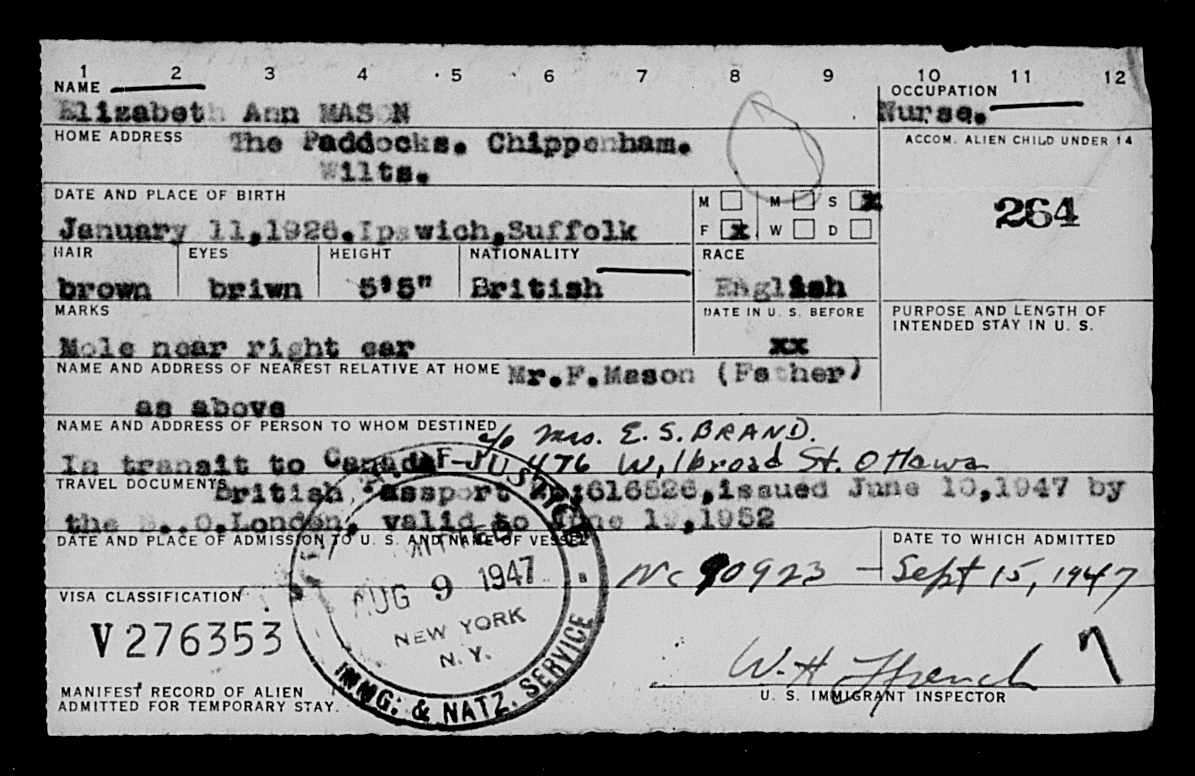 1 2 3 4 5 6 7 8 9 10 11 12
NAME
Elizabeth Ann MASON
OCCUPATION
Nurse.
HOME ADDRESS The Paddocks. Chippenham.
Wilts.
ACCOM. ALIEN CHILD UNDER 14
264
DATE AND PLACE OF BIRTH
January 11,1926.Ipswich,Suffolk
M M S x
F x W D
HAIR EYES HEIGHT NATIONALITY RACE
brown briwn 5'5" British English
MARKS
Mole near right ear
DATE IN U. S. BEFORE
xx
PURPOSE AND LENGTH OF
INTENDED STAY IN U. S.
NAME AND ADDRESS OF NEAREST RELATIVE AT HOME Mr.F.Mason (Father)
as above
NAME AND ADDRESS OF PERSON TO WHOM DESTINED c/o Mrs. E.S.BRAND.
In transit to Canada 476 Wilbroad St. Ottawa
TRAVEL DOCUMENTS British Passport 616526,issued June 10,1947 by
the London, valid to June 1952
DATE AND PLACE OF ADMISSION TO U. S. AND NAME OF VESSEL
DATE TO WHICH ADMITTED
Nc 90923 - Sept 15, 1947
VISA CLASSIFICATION
V276353
OF JUSTICE
ADMITTED
AUG 9 1947
NEW YORK
N. Y.
IMMG. & NATZ. SERVICE
W.H. Ffrench
7
U. S. IMMIGRANT INSPECTOR
MANIFEST RECORD OF ALIEN
ADMITTED FOR TEMPORARY STAY.